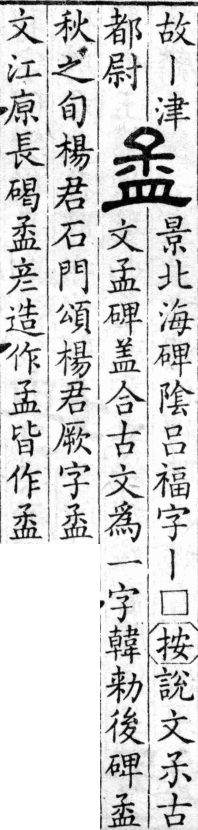 故丨津
都尉
孟
景北海碑陰呂福字丨□按說文古
文孟碑盖合古文爲一字韓勑後碑孟
秋之旬楊君石門頌楊君厥字孟
文江原長碣孟彦造作孟皆作孟